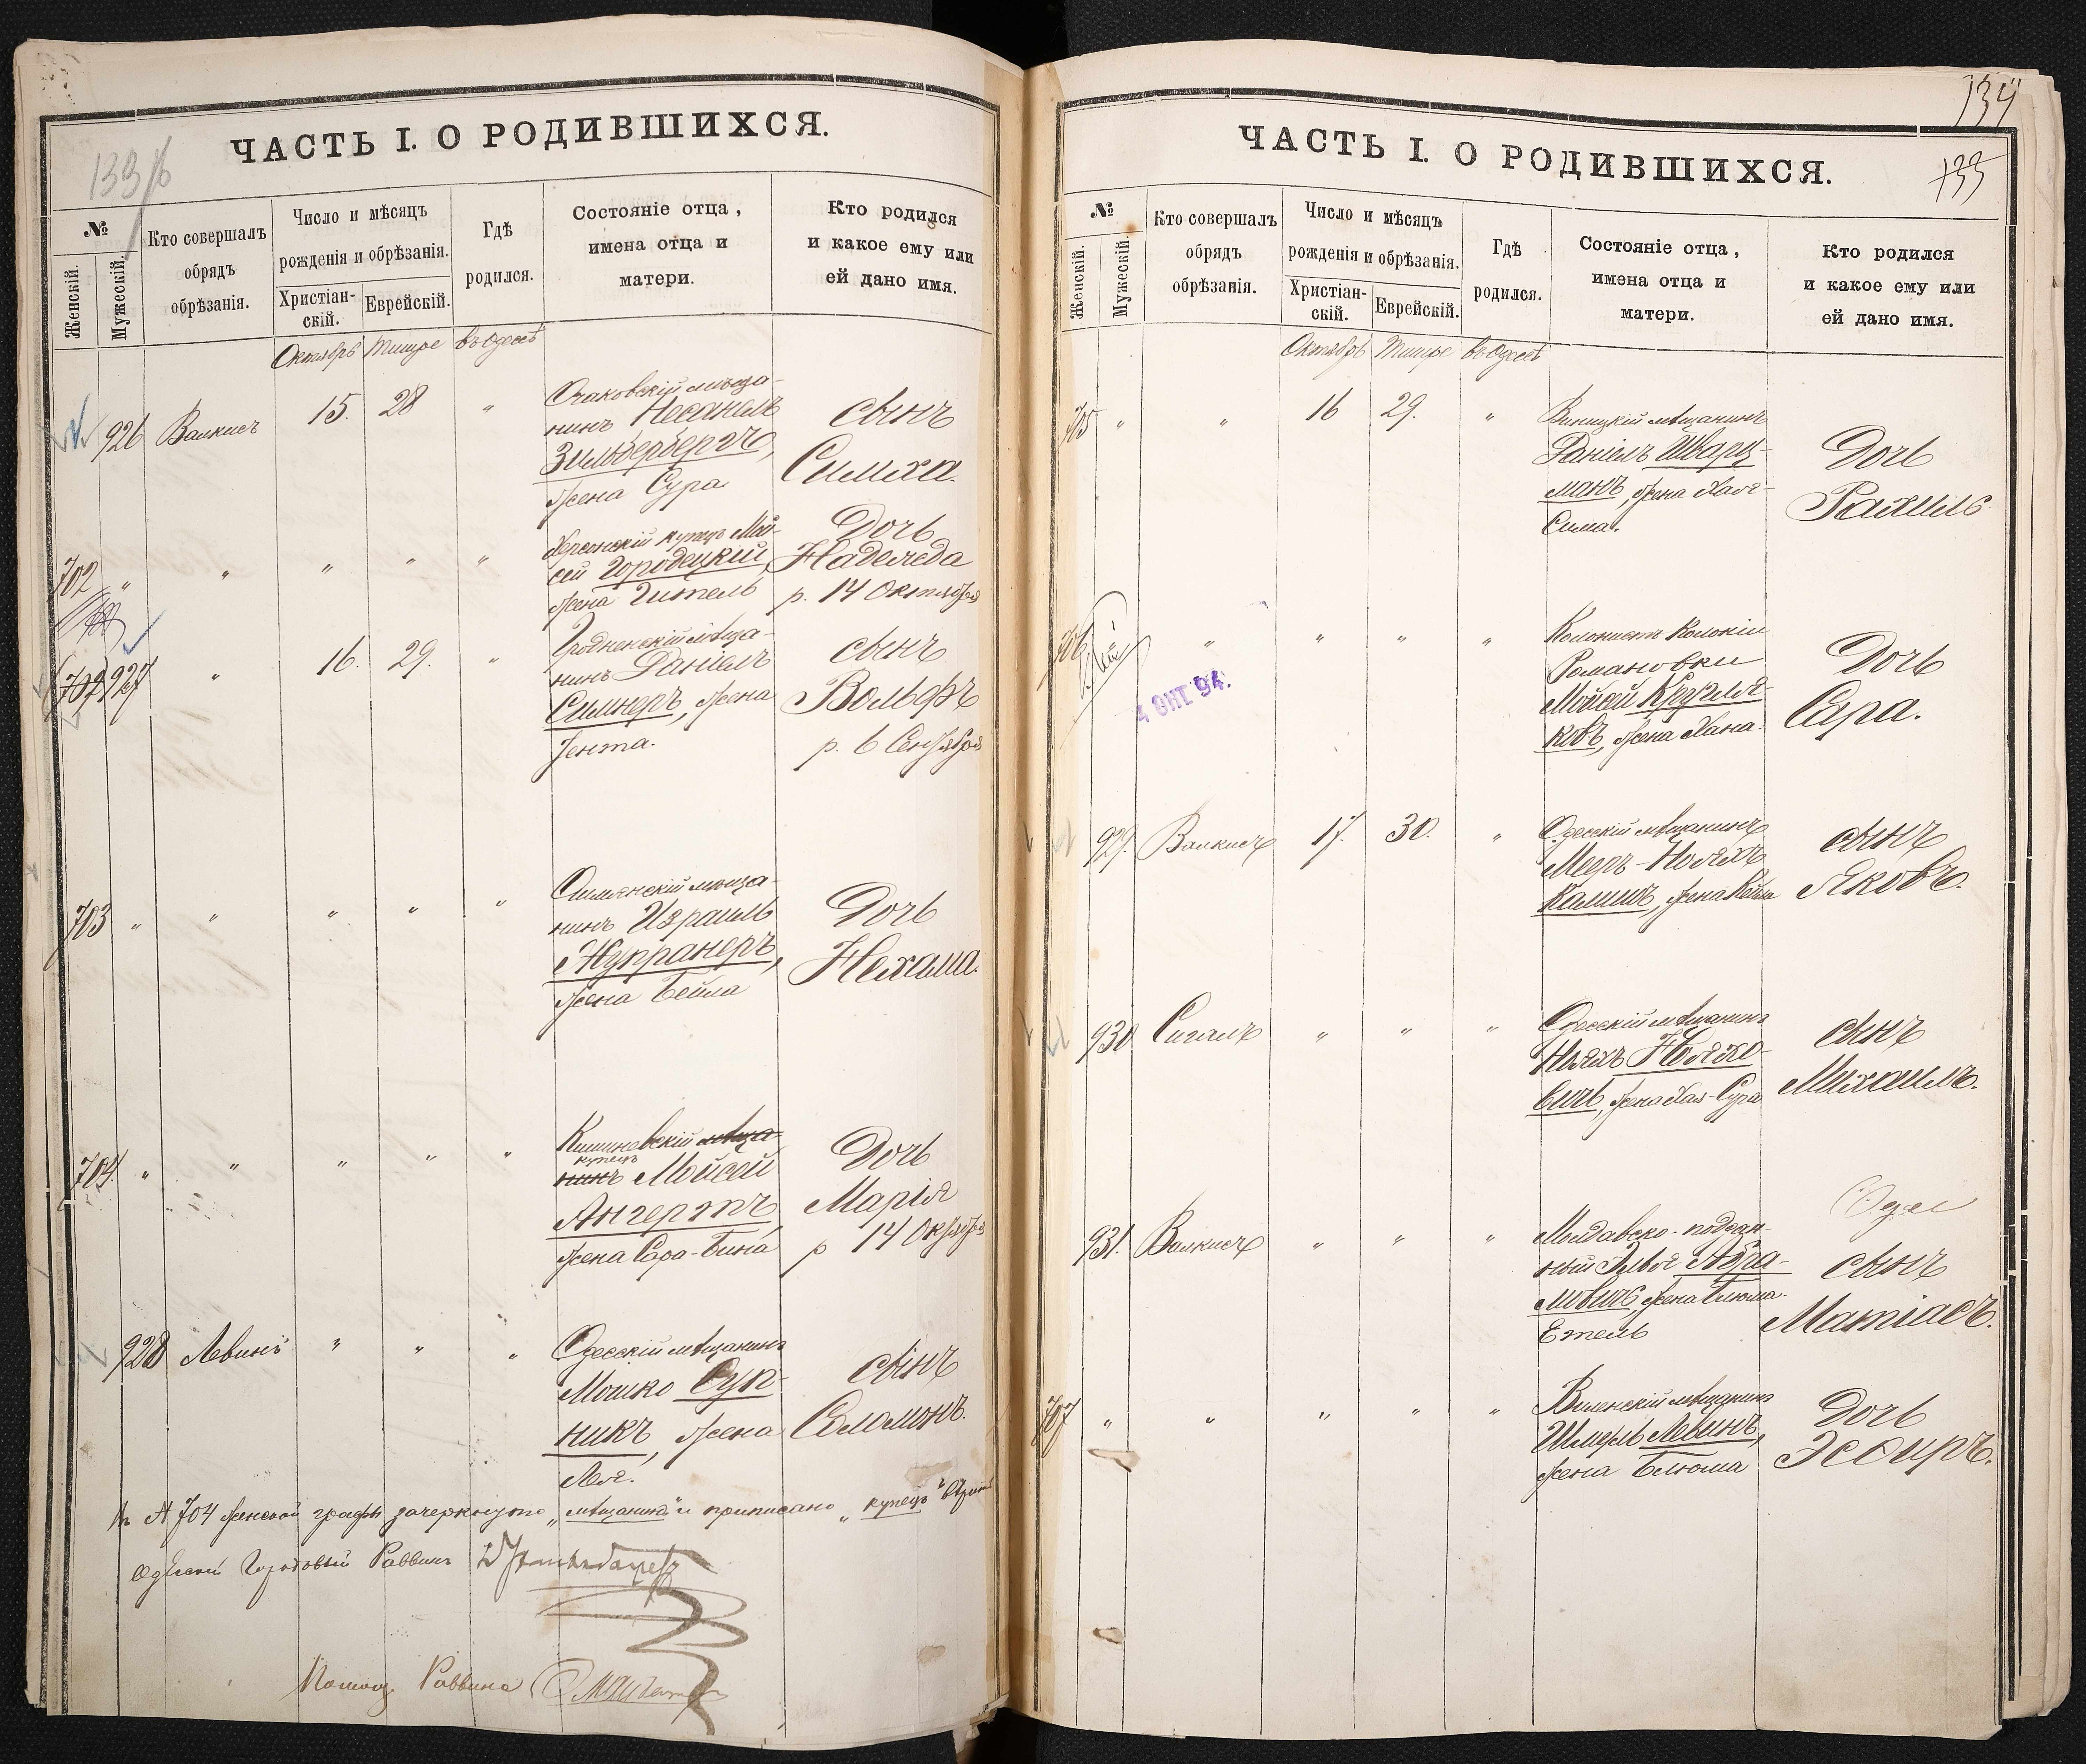 133/б
ЧАСТЬ I. О РОДИВШИХСЯ.
№
Женскій.
Мужескій.
Кто совершалъ
обрядъ
обрѣзанія.
Число и мѣсяцъ
рожденія и обрѣзанія.
Христіан-
скій.
Еврейскій.
Гдѣ
родился.
Состояніе отца,
имена отца и
матери.
Кто родился
и какое ему или
ей дано имя.
Октябрь Тишре въ Одессѣ
926 Валкисъ 15. 28 "
Очаковскій мѣща-
нинъ Несанель
Зильбербергъ,
жена Сура
сынъ
Симха.
702 " " " " "
Херсонскій купецъ Мой-
сей Городецкій,
жена Гитель
Дочь
Надежда
р. 14 Октября
702 927 " 16. 29. "
Гродненскій мѣща-
нинъ Даніель
Симнеръ, жена
Гента.
сынъ
Вольфъ
р. 6 Сентября
703 " " " " "
мѣща-
нинъ Израиль
жена Бейла
Дочь
Нехама.
704. " " " " "
Кишиневскій мѣща-
купецъ
нинъ Мойсей
Ангертъ
жена Сара-Бина
Дочь
Марія
р 14 Октября
928 Левинъ " " "
Одесскій мѣщанинъ
Мошко Суп-
никъ, жена
Лея.
сынъ
Соломонъ.
№ 704 женской графы зачеркнуто „мѣщанинъ" и приписано „купецъ"
Одесскій Городовый Раввинъ
Помощ. Раввина
134
133
ЧАСТЬ I. О РОДИВШИХСЯ.
№
Женскій.
Мужескій.
Кто совершалъ
обрядъ
обрѣзанія.
Число и мѣсяцъ
рожденія и обрѣзанія.
Христіан-
скій.
Еврейскій.
Гдѣ
родился.
Состояніе отца,
имена отца и
матери.
Кто родился
и какое ему или
ей дано имя.
Октябрь Тишре въ Одессѣ
705 " " 16 29. "
Виницкій мѣщанинъ
Даніель Шварц-
манъ, жена Хая-
Сима.
Дочь
Рахиль
706 " " " "
4 ОКТ 94.
Колонистъ Колоніи
Романовки
Мойсей Кругля-
ковъ, жена Хана.
Дочь
Сара.
929. Валкисъ 17. 30. "
Одесскій мѣщанинъ
Меер-Нояхъ
Калишъ, жена
сынъ
Яковъ.
930 Сигалъ " " "
Одесскій мѣщанинъ
Нояхъ Нояхо-
вичъ, жена Хая-Сура
сынъ
Михаилъ.
931. Валкисъ " " "
Молдавско-поддан-
ный Элья Абра-
мовичъ, жена Блюма-
Етель
сынъ
Матіасъ.
707 " " " " "
Виленскій мѣщанинъ
Шмерль Левинъ,
жена Блюма
Дочь
Эсѳиръ.